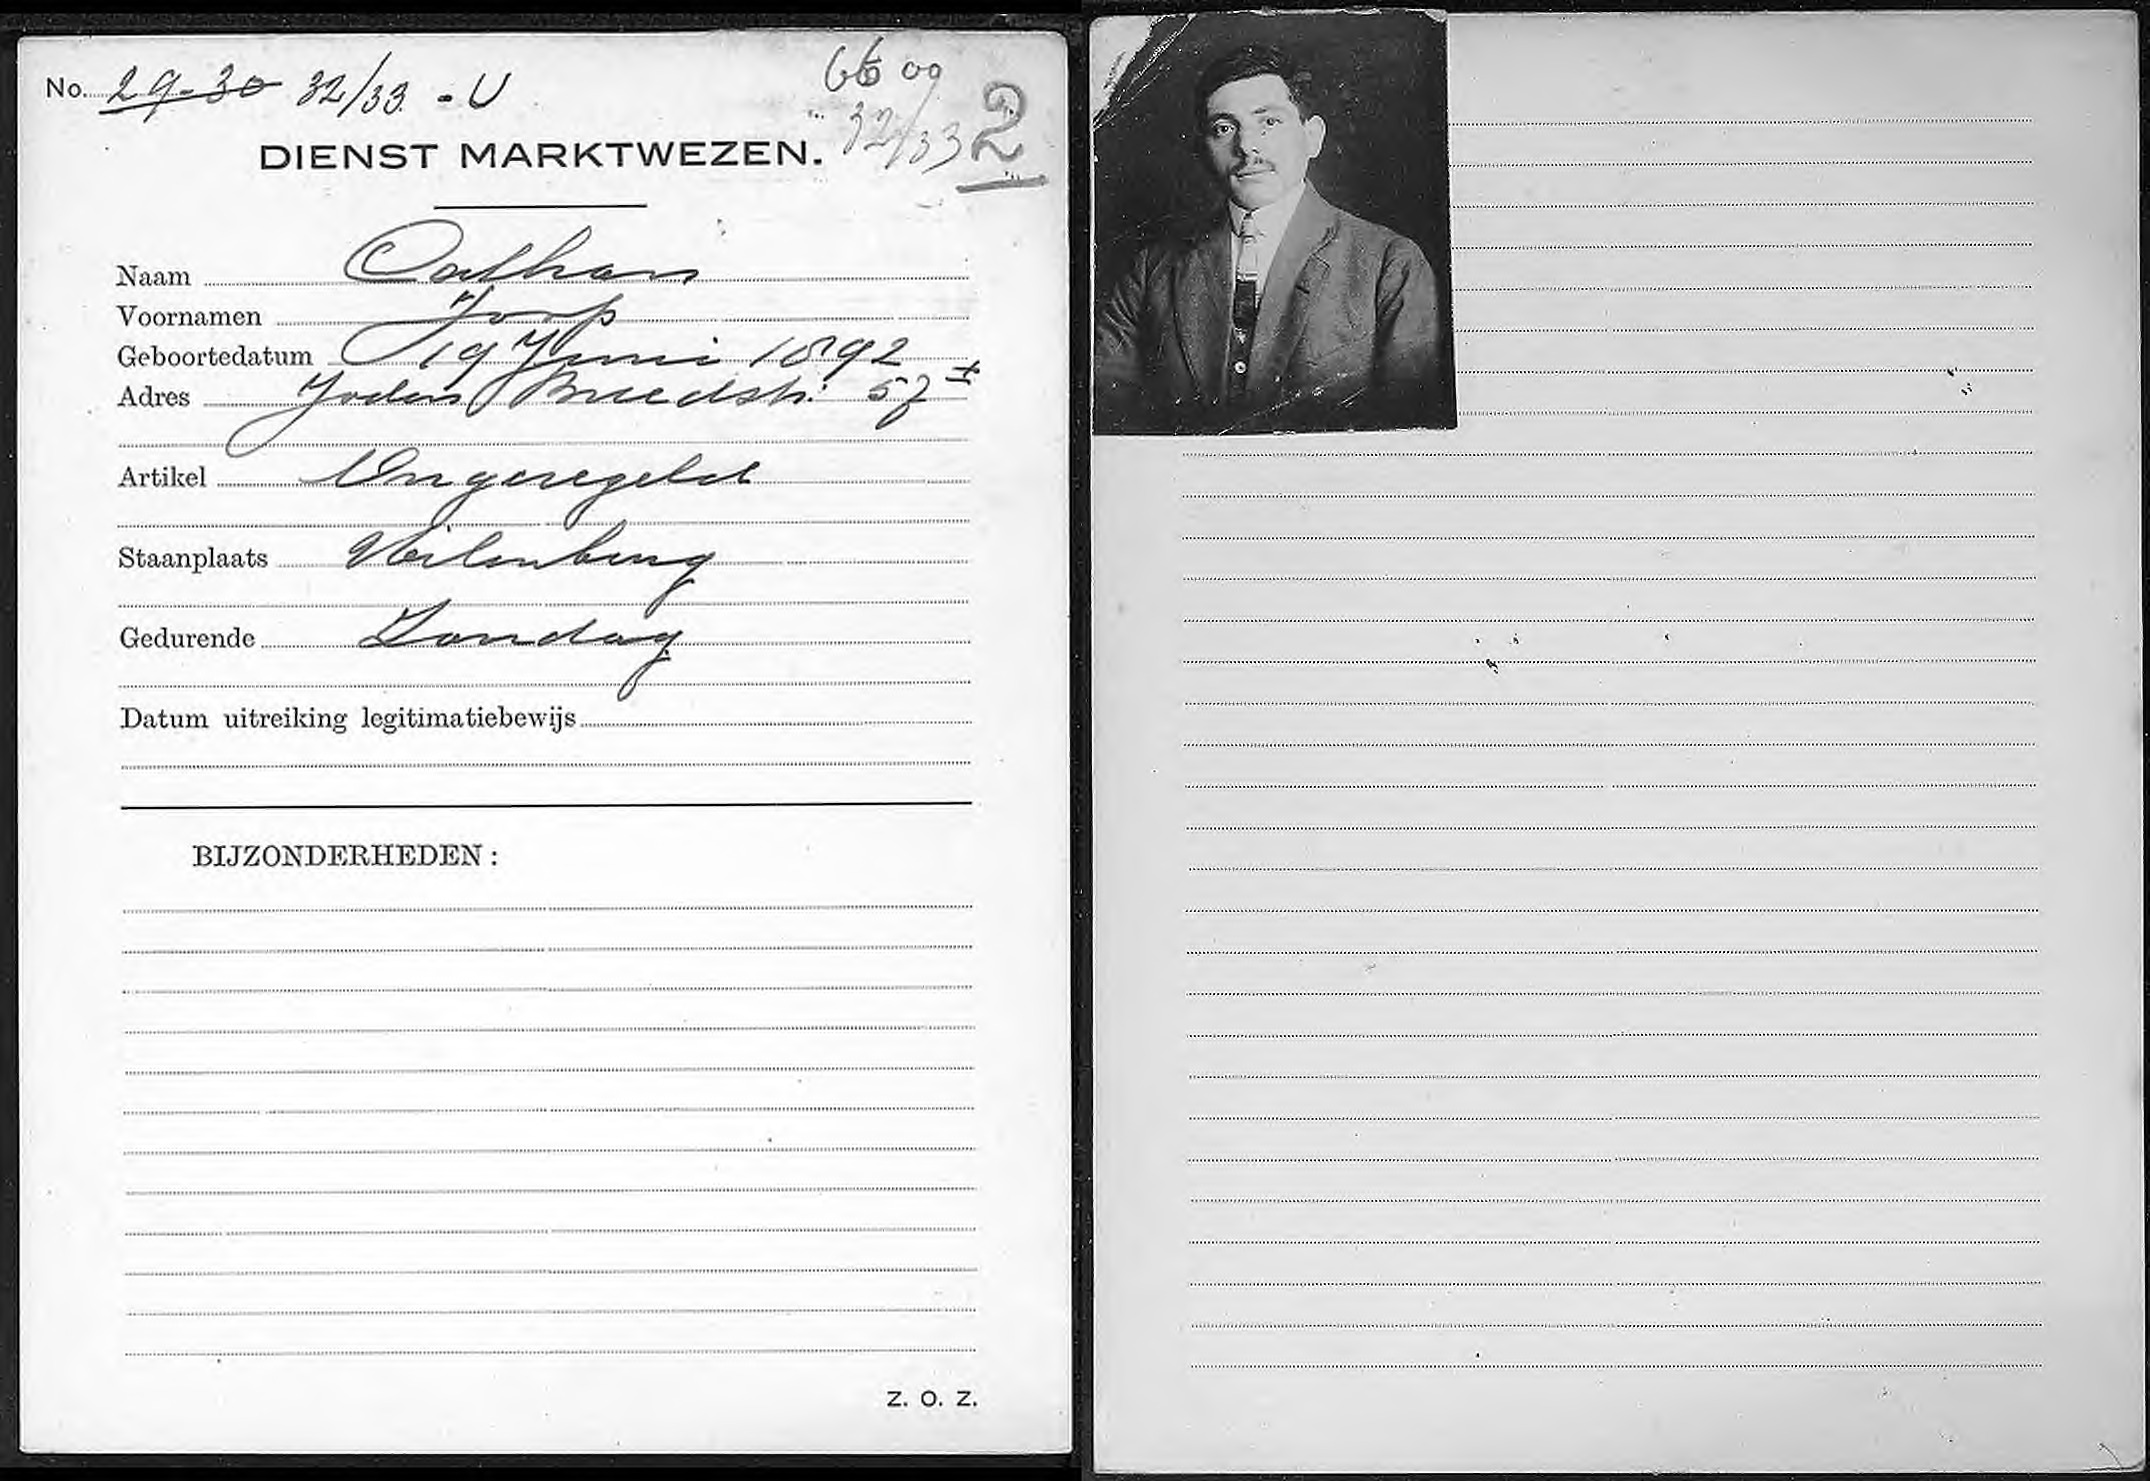 No. 29-30 32/33 - U
66 00
32/33 2
DIENST MARKTWEZEN.
Naam
Voornamen Joop
Geboortedatum 19 Juni 1892
Adres Joden Breedstr. 57 I
Artikel Ongeregeld
Staanplaats Uilenburg
Gedurende Zondag
Datum uitreiking legitimatiebewijs
BIJZONDERHEDEN:
Z. O. Z.